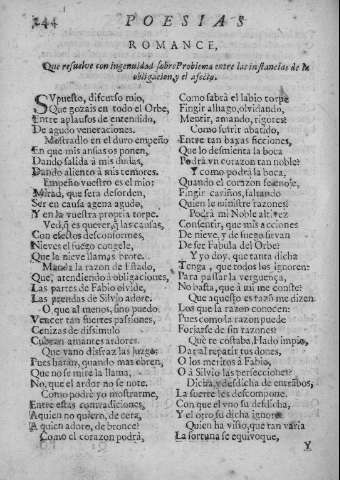 244 POESIAS
ROMANCE,
Que resuelve con ingenuidad sobre Problema entre las instancias de la
obligacion, y el afecto.
SVpuesto, discurso mio,
Que gozais en todo el Orbe,
Entre aplausos de entendido,
De agudo veneraciones.
Mostradlo en el duro empeño
En que mis ansias os ponen,
Dando salida à mis dudas,
Dando aliento à mis temores.
Empeño vuestro es el mio:
Mirad, que serà desorden,
Ser en causa agena agudo,
Y en la vuestra propria torpe.
Ved, que es querer, que las causas,
Con efectos desconformes,
Nieves el fuego congele,
Que la nieve llamas brote.
Manda la razon de Estado,
Que, atendiendo à obligaciones,
Las partes de Fabio olvide,
Las prendas de Silvio adore.
O que al menos, sino puedo
Vencer tan fuertes passiones,
Cenizas de dissimulo
Cubran amantes ardores.
Que vano disfraz las juzgo:
Pues haràn, quando mas obren,
Que no se mire la llama,
No, que el ardor no se note.
Como podrè yo mostrarme,
Entre estas contradiciones,
A quien no quiero, de cera,
A quien adoro, de bronce?
Como el corazon podrà,
Como sabrà el labio torpe
Fingir alhago, olvidando,
Mentir, amando, rigores?
Como sufrir abatido,
Entre tan baxas ficciones,
Que lo desmienta la boca
Podrà vn corazon tan noble?
Y como podrà la boca,
Quando el corazon se enoje,
Fingir cariños, faltando
Quien le ministre razones?
Podrà mi Noble altivez
Consentir, que mis acciones
De nieve, y de fuego sirvan
De ser Fabula del Orbe?
Y yo doy, que tanta dicha
Tenga, que todos los ignoren:
Para passar la verguença,
No basta, que à mi me conste?
Que aquesto es razõ me dizen
Los que la razon conocen:
Pues como la razon puede
Forjarse de sin razones?
Què te costaba, Hado impio,
Dar al repartir tus dones,
O los meritos à Fabio,
O à Silvio las perfecciones?
Dicha, y desdicha de entrabos,
La suerte les descompone.
Con que el vno su desdicha,
Y el otro su dicha ignore.
Quien ha visto, que tan varia
La fortuna se equivoque,
Y